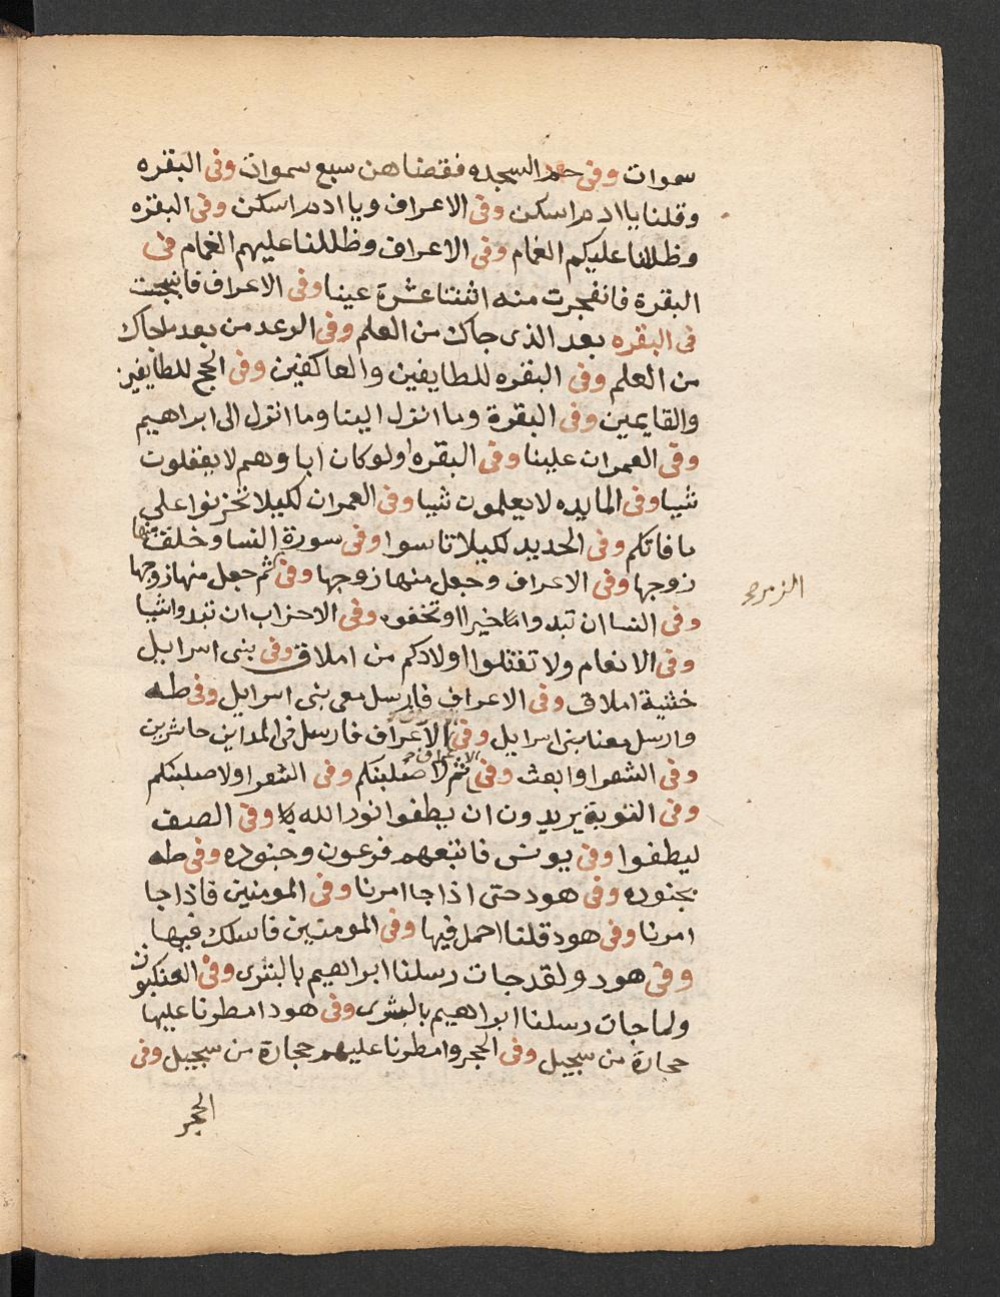 سموات وفى حم السجده فقضاهن سبع سموات وفى البقره
وقلنا يا ادم اسكن وفى الاعراف ويا ادم اسكن وفى البقره
وظللنا عليكم الغمام وفى الاعراف وظللنا عليهم الغمام فى
البقرة فانفجرت منه اثنتا عشرة عينا وفى الاعراف فانبجست
فى البقره بعد الذى جاك من العلم وفى الرعد من بعد ماجاك
من العلم وفى البقره للطايفين والعاكفين وفى الحج للطايفين
والقايمين وفى البقرة وما انزل الينا وما انزل الى ابراهيم
وفى العمران علينا وفى البقره اولو كان اباوهم لا يعقلون
شيا وفى المايده لا يعلمون شيا وفى العمران لكيلا تحزنوا على
ما فاتكم وفى الحديد لكيلا تاسوا وفى سورة النسا وخلق منها
زوجها وفى الاعراف وجعل منها زوجها وفى ثم جعل منها زوجها
الزمر صح
وفى النسا ان تبدوا خيرا او تخفوه وفى الاحزاب ان تبدوا شيا
وفى الانعام ولا تقتلوا اولادكم من املاق وفى بنى اسرايل
خشية املاق وفى الاعراف فارسل معى بنى اسرايل وفى طه
وارسل معنا بنى اسرايل وفى الاعراف فارسل فى المداين حاشرين
وفى الشعرا وابعث وفى الاعراف ثم لاصلبنكم وفى الشعرا ولاصلبنكم
وفى التوبة يريدون ان يطفوا نور الله وفى الصف
ليطفوا وفى يونس فاتبعهم فرعون وجنوده وفى طه
بجنوده وفى هود حتى اذا جا امرنا وفى المومنين فاذا جا
امرنا وفى هود قلنا احمل فيها وفى المومنين فاسلك فيها
وفى هود ولقد جات رسلنا ابراهيم بالبشرى وفى العنكبوت
ولما جات رسلنا ابراهيم بالبشرى وفى هود امطرنا عليها
حجارة من سجيل وفى الحجر وامطرنا عليهم حجارة من سجيل وفى
الحجر